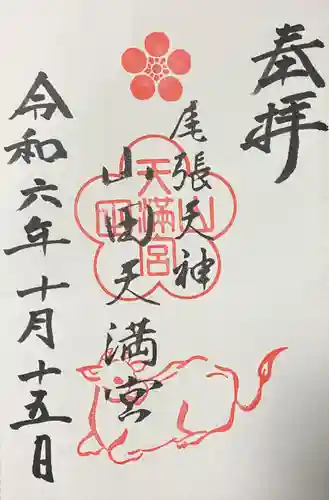 奉拝
尾張天神
山田天満宮
令和六年十月十五日
山田天満宮